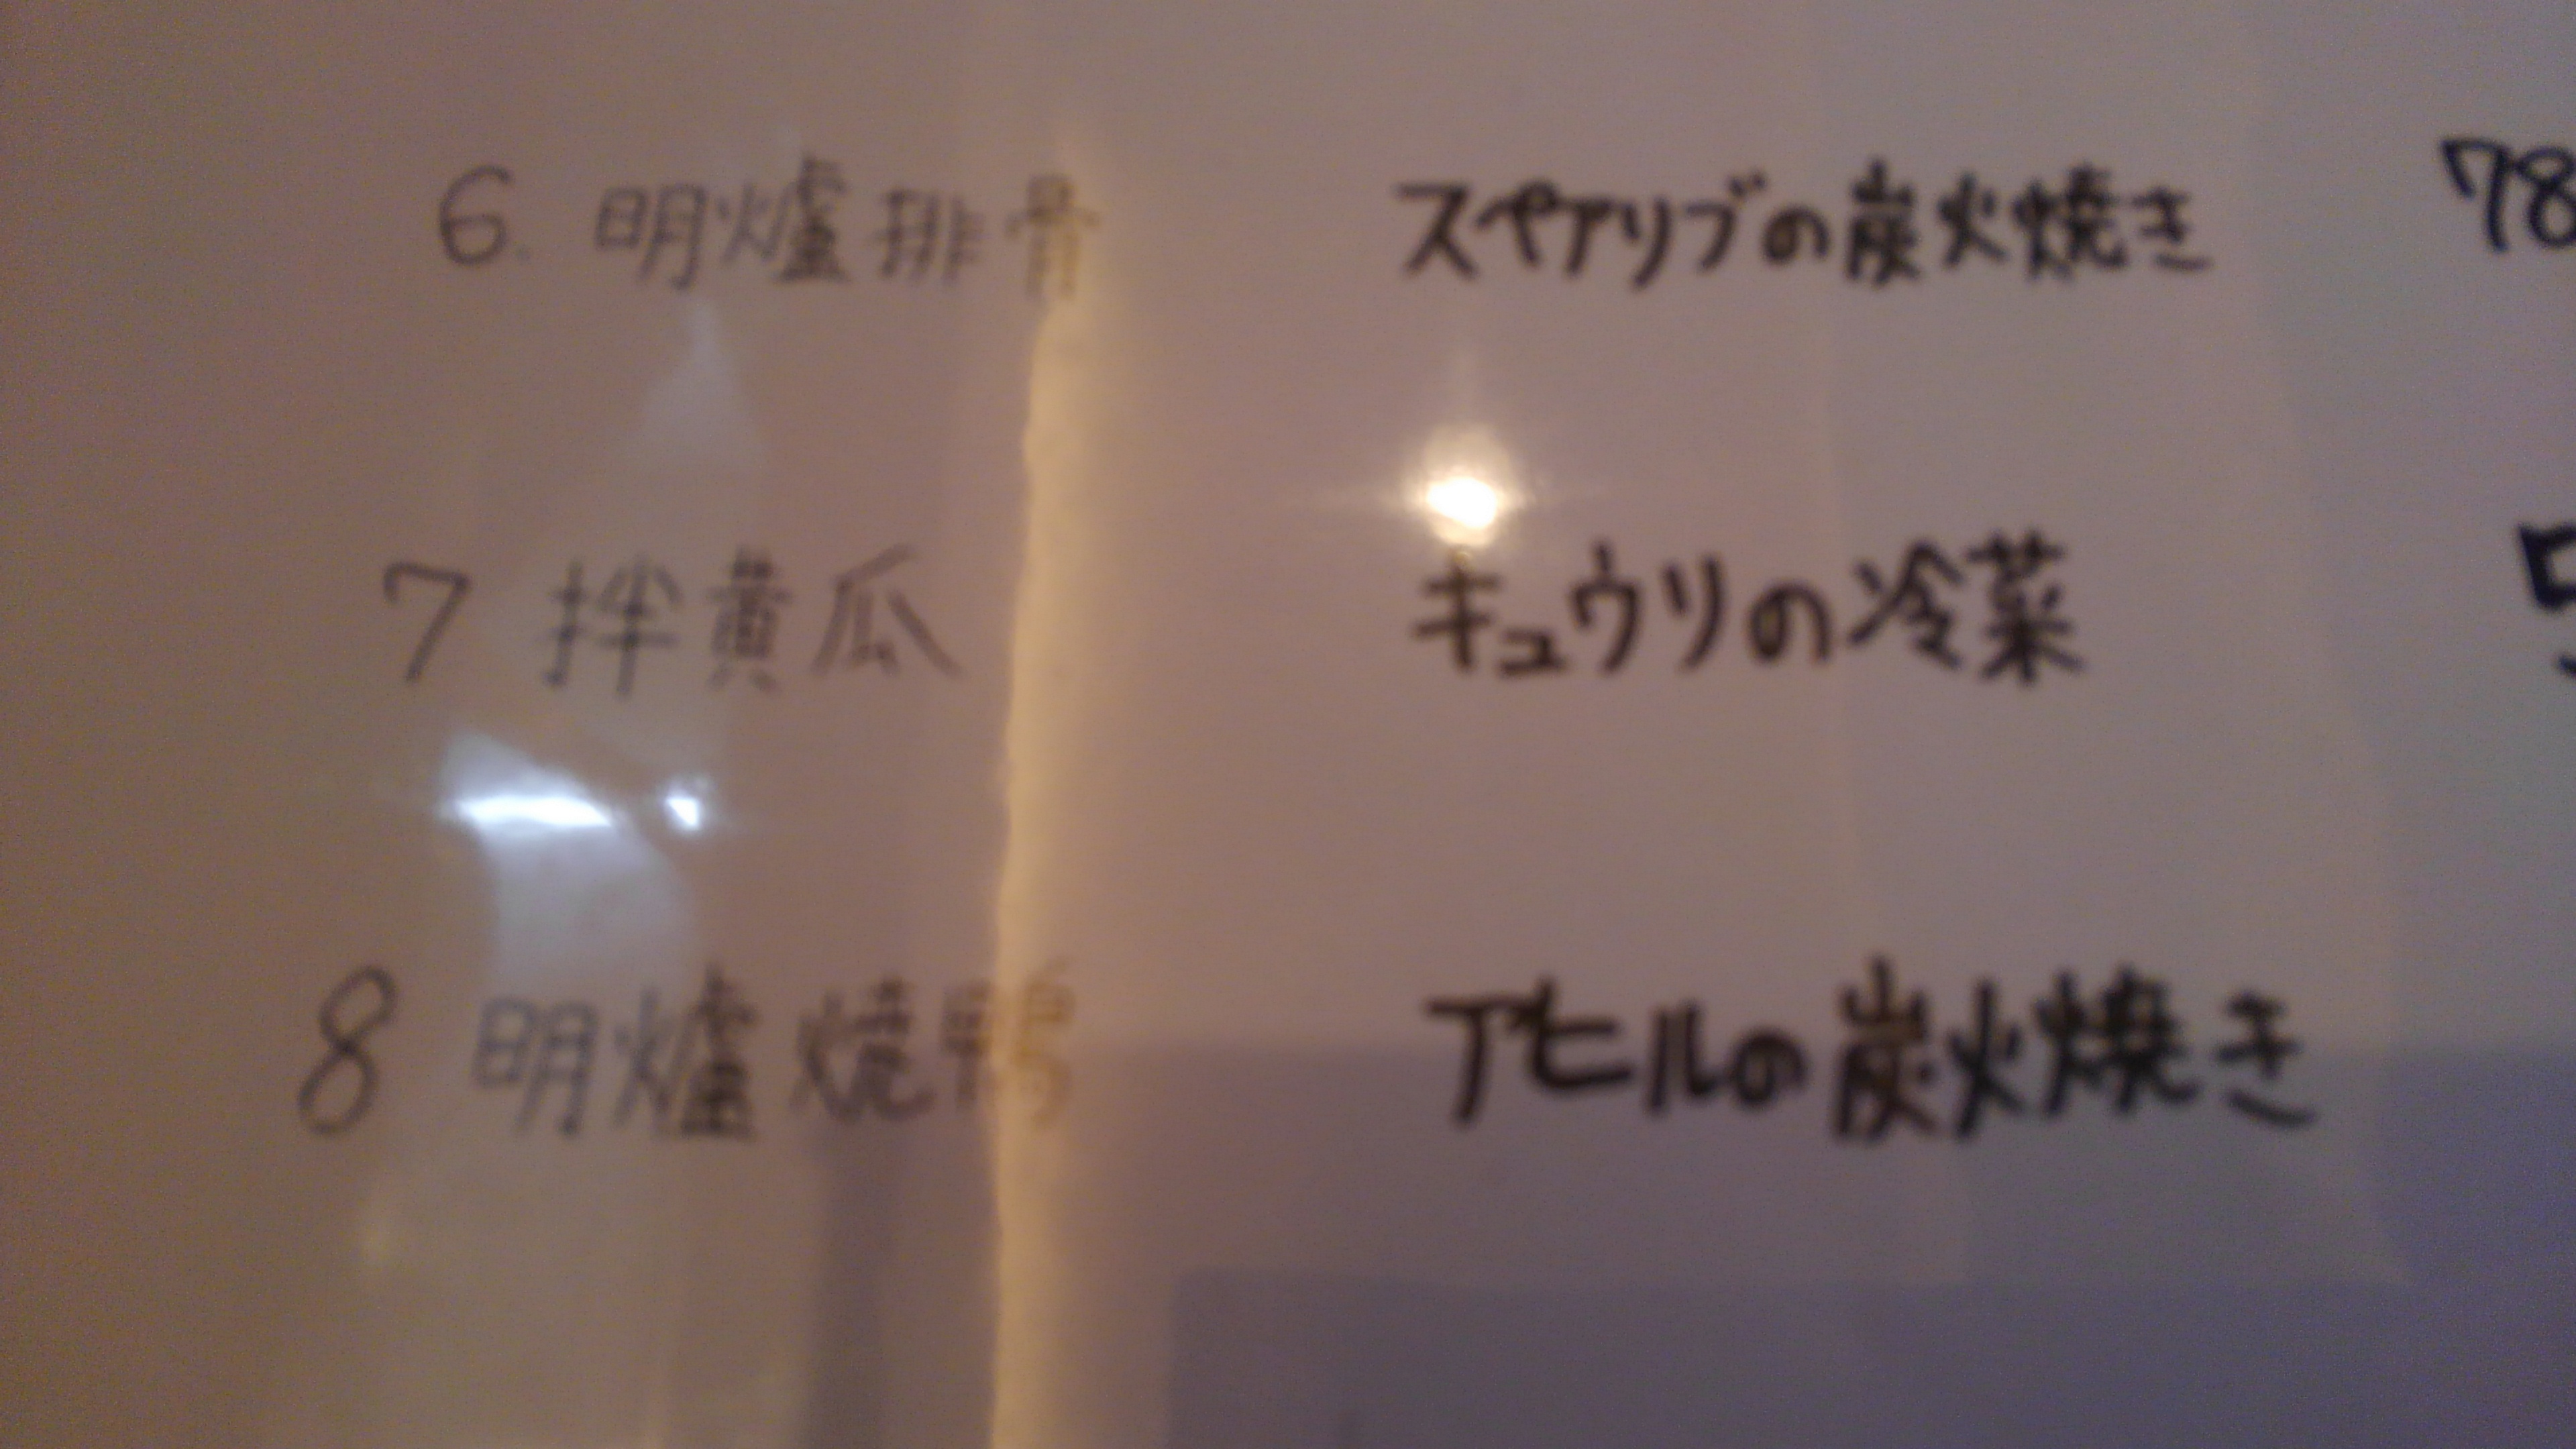 6. 明爐排骨 スペアリブの炭火焼き 78
7 拌黄瓜 キュウリの冷菜 5
8 明爐焼鴨 アヒルの炭火焼き